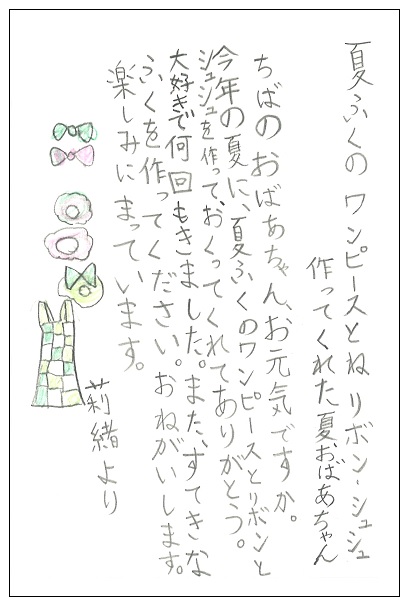 夏ふくのワンピースとね リボン・シュシュ
作ってくれた夏おばあちゃん
ちばのおばあちゃん、お元気ですか。
今年の夏に、夏ふくのワンピースとリボンと
シュシュを作って、おくってくれてありがとう。
大好きで何回もきました。また、すてきな
ふくを作ってください。おねがいします。
楽しみにまっています。
莉緒より